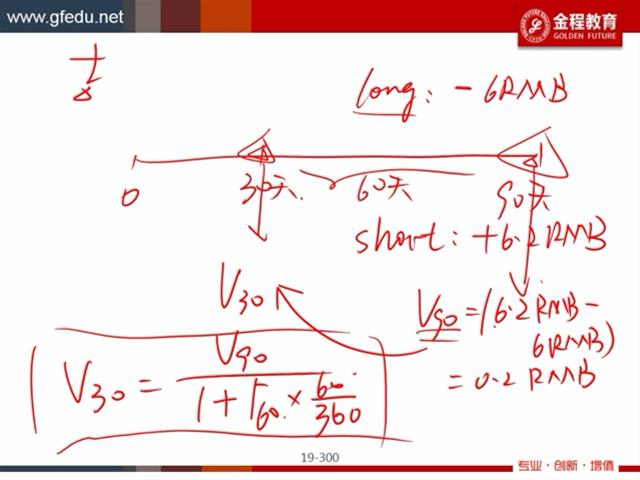 www.gfedu.net
金程教育
GOLDEN FUTURE
long: -6RMB
0 30天 60天 90天
short: +6.2RMB
V30
V90=(6.2RMB-
6RMB)
=0.2RMB
V30 = V90 / 1+r60 × 60/360
19-300
专业·创新·增值